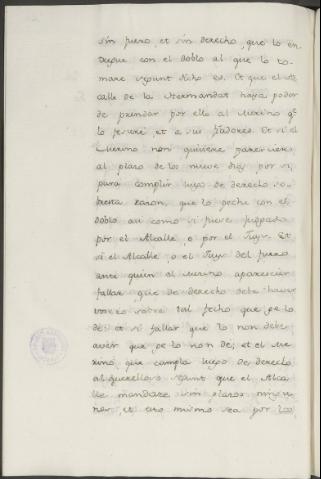 sin fuero et sin derecho, que lo en-
tregue con el doblo al que lo to-
mare segunt dicho es. Et que el Al-
calle de la Hermandat haya poder
de prendar por ello al Merino qe
lo et a sus fiadores. Et si el
Merino non quisiere parescier
al plazo de los nueve dias por si,
para complir luego de derecho so-
bresta razon, que lo peche con el
doblo asi como si fuese juzgado
por el Alcalle o por el Juyz. Et
si el Alcalle o el Juyz del fuero
ante quien el Merino aparescier
fallar que de derecho debe haver
sobre tal fecho que ge lo
dé: et si fallar que lo non debe
aver que ge lo non dé; et el Me-
rino que cumpla luego de derecho
al querelloso segunt que el Alca-
lle mandare sin plazos ningu-
nos, et eso mismo sea por los